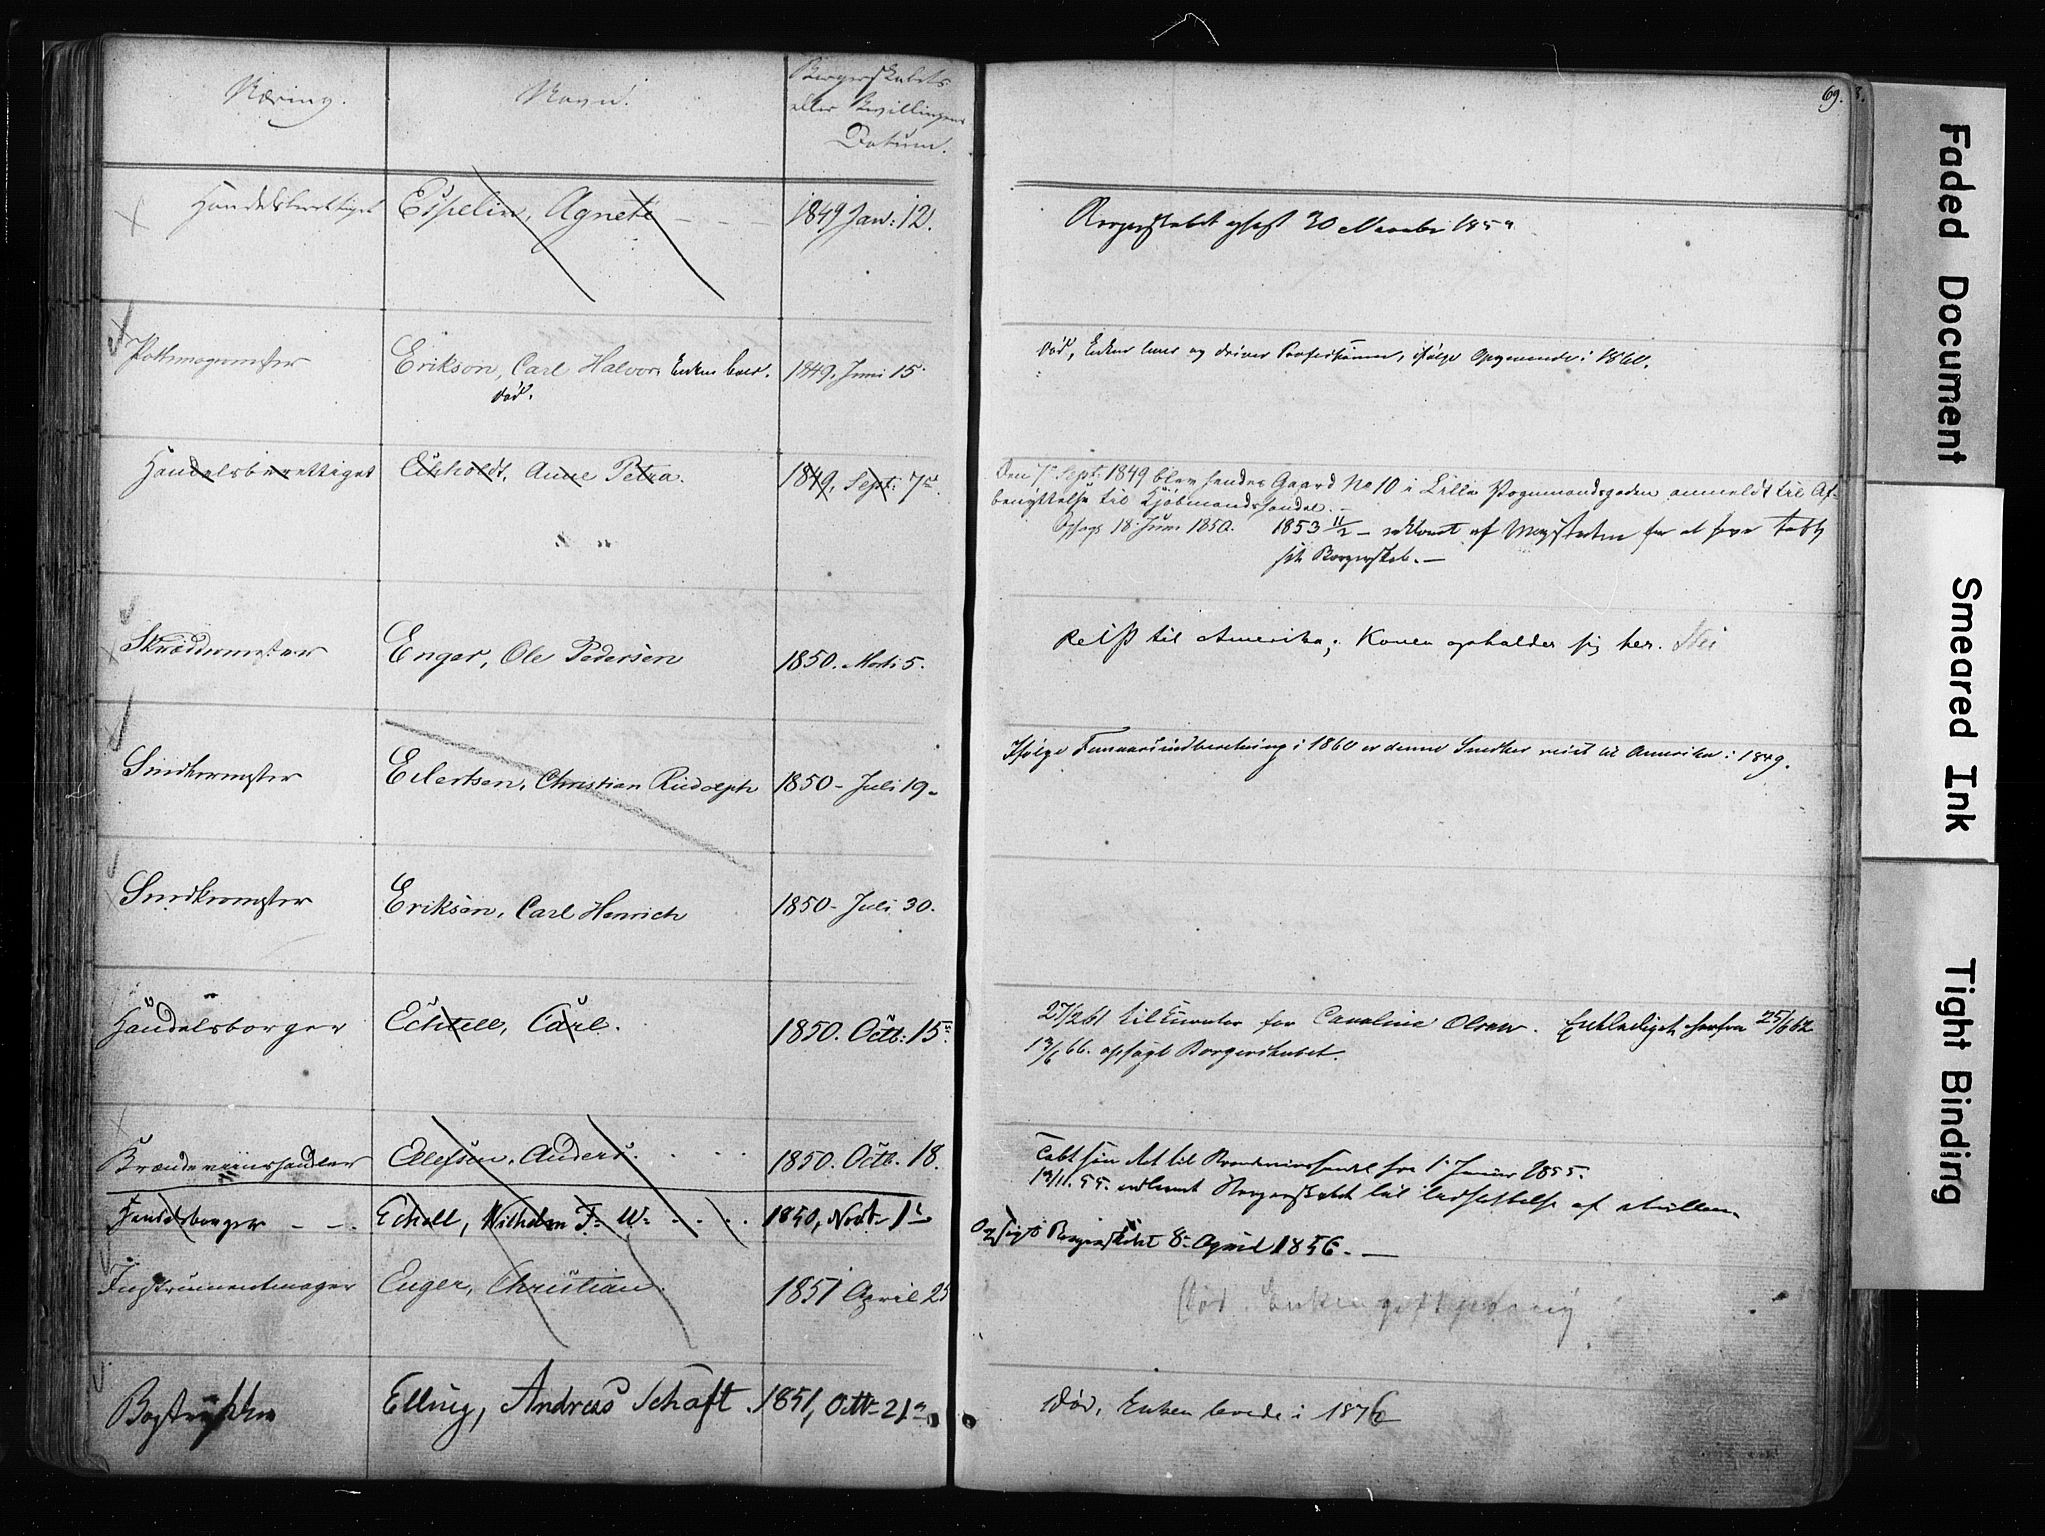 Næring. Navn. Borgerskabets
eller Bevillingens
Datum.
69.
Handelsberettiget Espelin, Agnete 1849 Jan: 12. Borgerskabet opsagt 30
Pottemagermester Erikson, Carl Halvor Enken lever. 1849. Juni 15. Død, Enken lever og driver Professionen, ifølge Opgivende i 1860.
død.
Handelsberettiget Eckholdt, Anne Petra. 1849, Sept: 7de. Den 7de Sept: 1849 blev hendes Gaard No 10 i Lille Vognmandsgaden anmeldt til Af-
benyttelse til Kjøbmandshandel.
Opsagt 18 Juni 1850. 1853 11/2 – af Magistraten for at have tabt
sit Borgerskab. –
Skræddermester Enger, Ole Pedersen 1850. Marts 5. Reist til Amerika; Konen opholder sig her. Nei
Snedkermester Eilertsen, Christian Rudolph 1850 - Juli 19. Ifølge i 1860 er denne Snedker reist til Amerika i 1849.
Snedkermester Eriksen, Carl Henrich 1850 - Juli 30.
Handelsborger Echtell, Carl. 1850. Octb: 15de 27/2 61 til Curator for Caroline Olsen. Entlediget herfra 25/6 62
13/6 66. opsagt Borgerskabet.
Brændeviinshandler Ellefsen, Anders. 1850. Octb. 18. Tabt sin Ret til Brændeviinshandel fra 1. Januar 1855.
Borgerskabet til af Mulkten.
Handelsborger - - Echoll, Wilhelm F: W: 1850, Novb- 1 Opsigt Borgerskabet 8de April 1856. –
Instrumentmager Enger, Christian. 1851 April 25 Død. Enken
Bogtrykker Elling, Andreas Schaft. 1851, Octb- 21de Død, Enken levede i 1876
Faded Document
Smeared Ink
Tight Binding